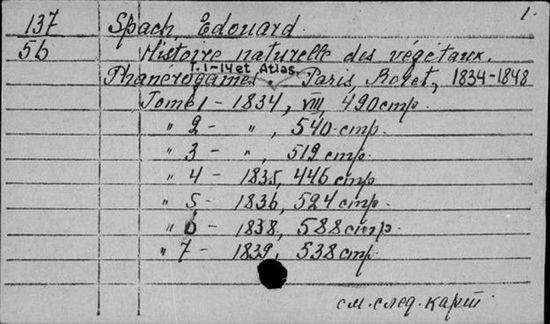 1.
137 Spach, Edouard.
5b Histoire naturelle des végétaux.
T. 1-14 et Atlas
Phanérogames Paris, Roret, 1834-1848
Tome 1 - 1834, VIII, 490 стр.
" 2 - ", 540 стр.
" 3 - ", 519 стр.
" 4 - 1835, 446 стр
" 5 - 1836, 524 стр.
" 6 - 1838, 588 стр.
" 7 - 1839, 538 стр.
см. след. карт